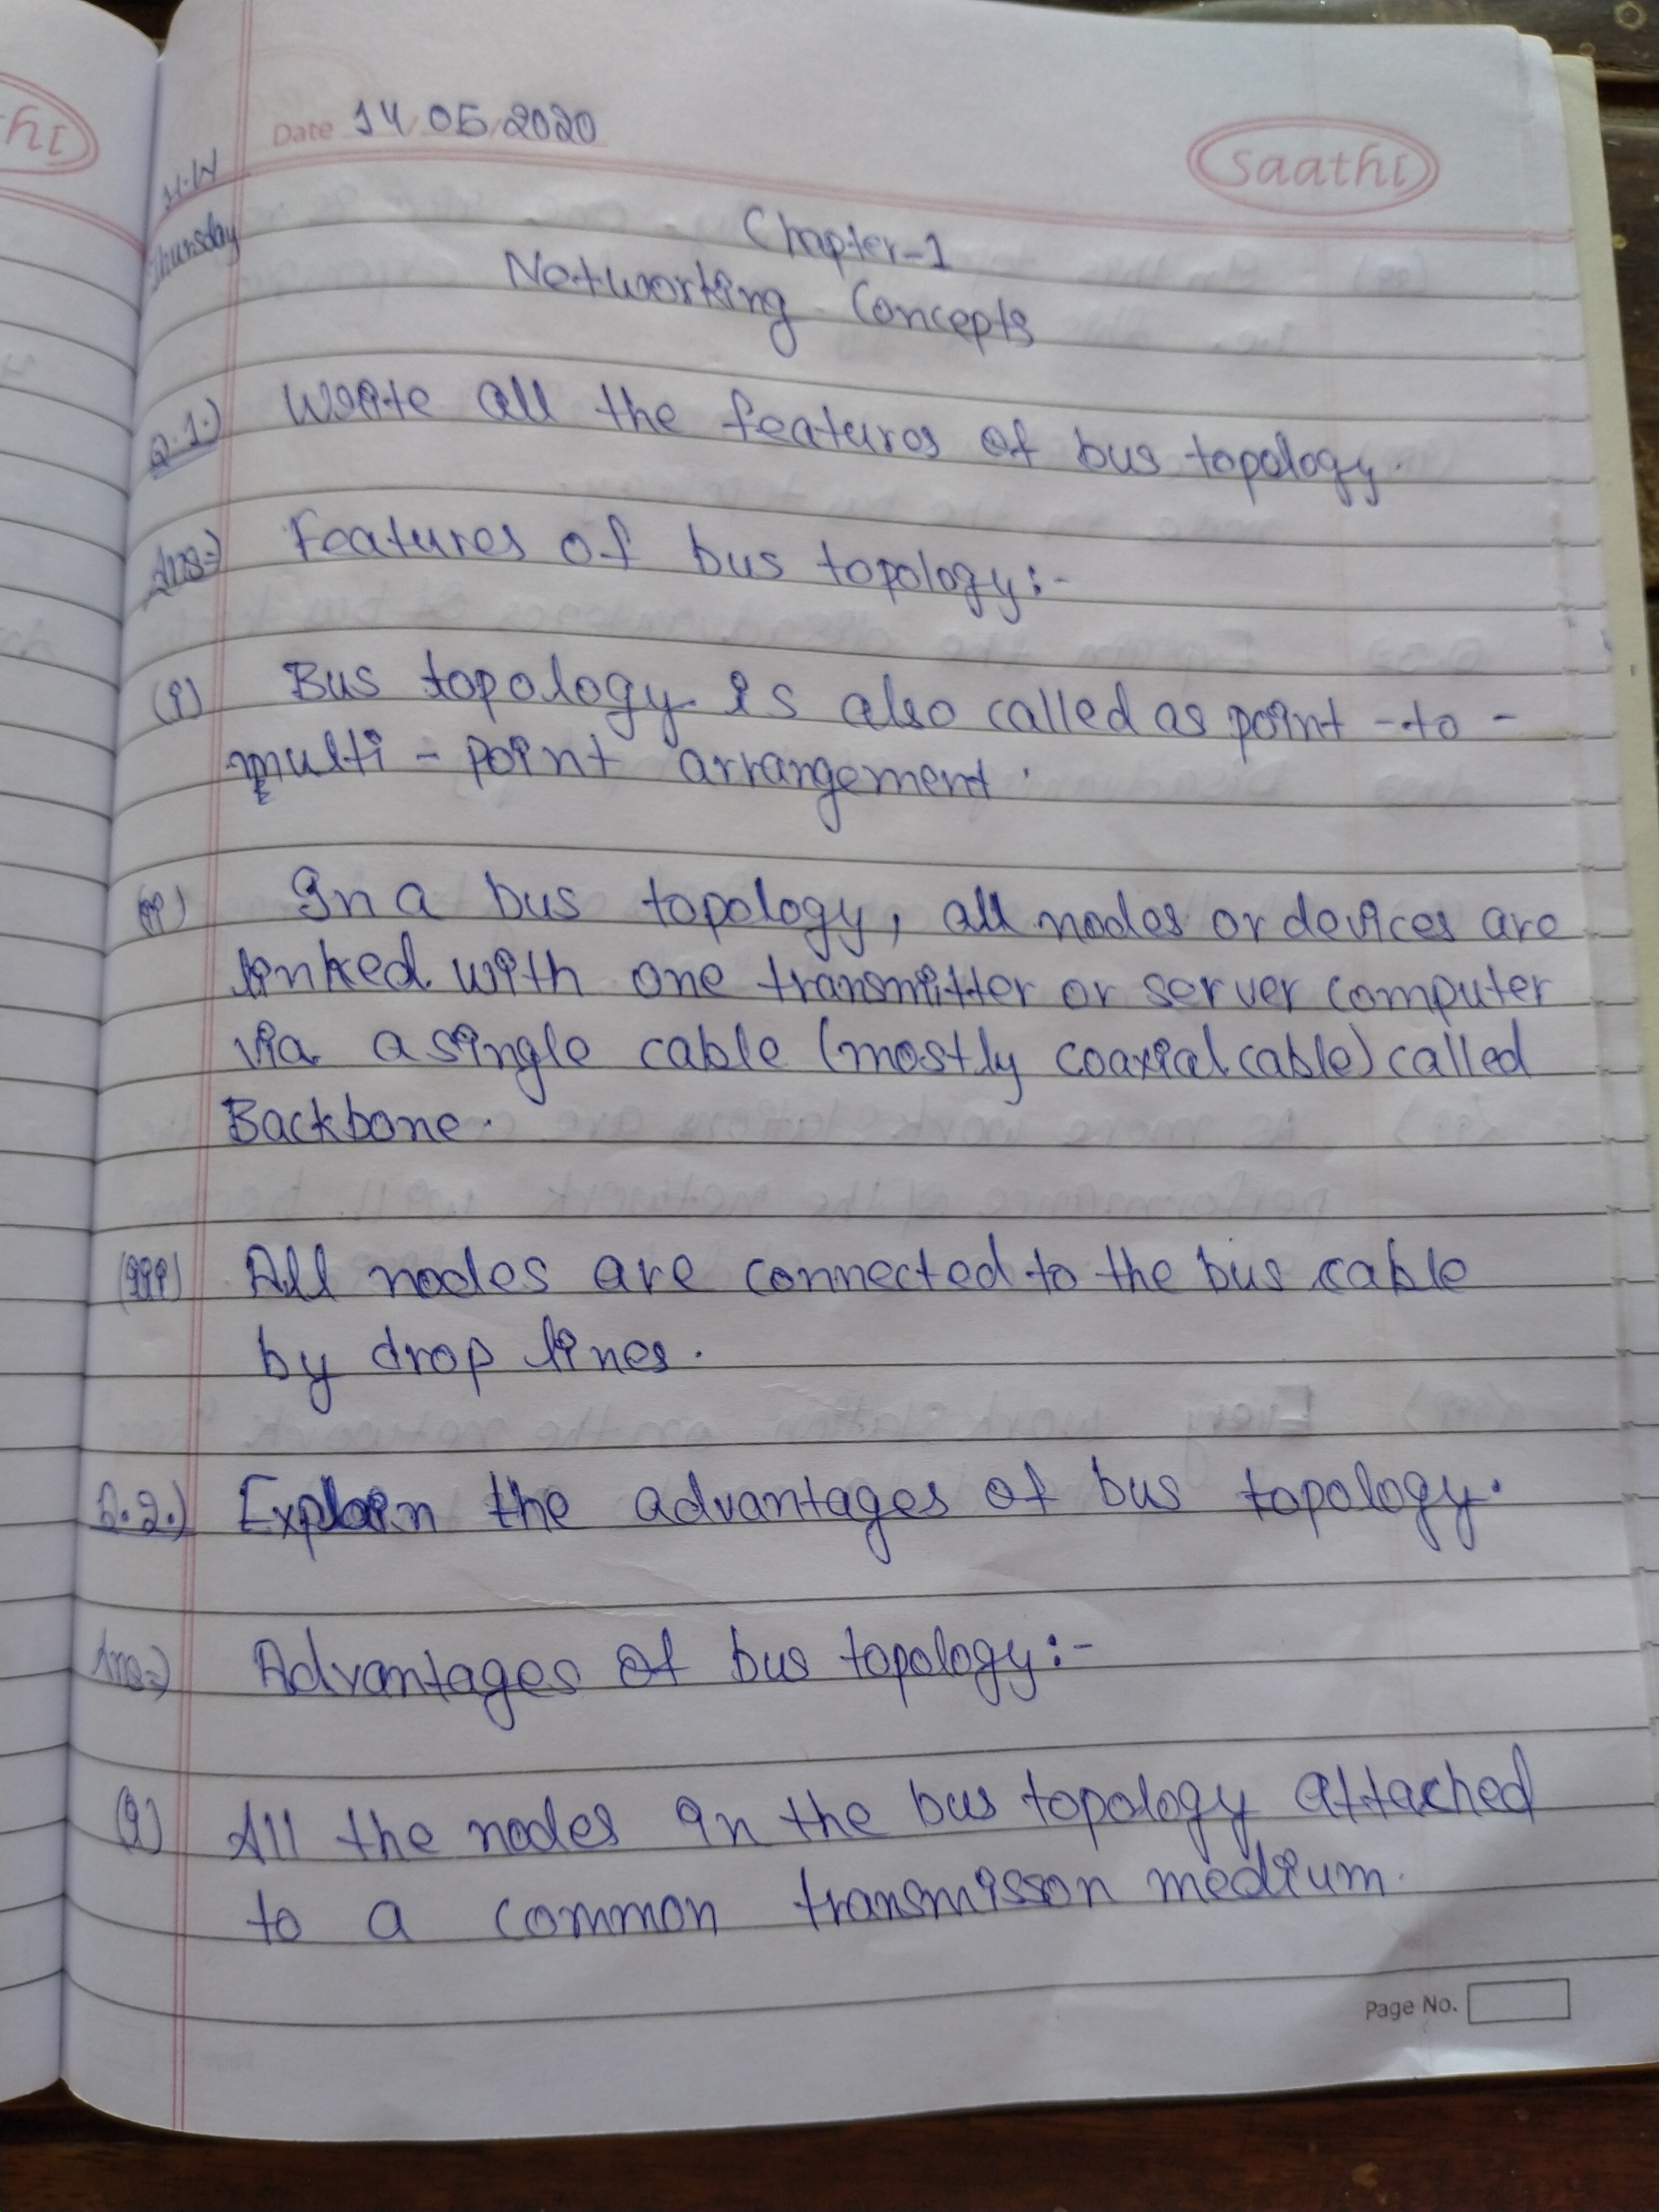 Date 14/05/2020
saathi
H.W
Thursday
Chapter-1
Networking Concepts
Q.1.) Write all the features of bus topology.
Ans⇒ Features of bus topology:-
(i) Bus topology is also called as point -to-
multi-point arrangement.
(ii) In a bus topology, all nodes or devices are
linked with one transmitter or server computer
via a single cable (mostly coaxial cable) called
Backbone.
(iii) All nodes are connected to the bus cable
by drop lines.
Q.2.) Explain the advantages of bus topology.
Ans⇒ Advantages of bus topology:-
(i) All the nodes in the bus topology attached
to a common transmisson medium.
Page No.